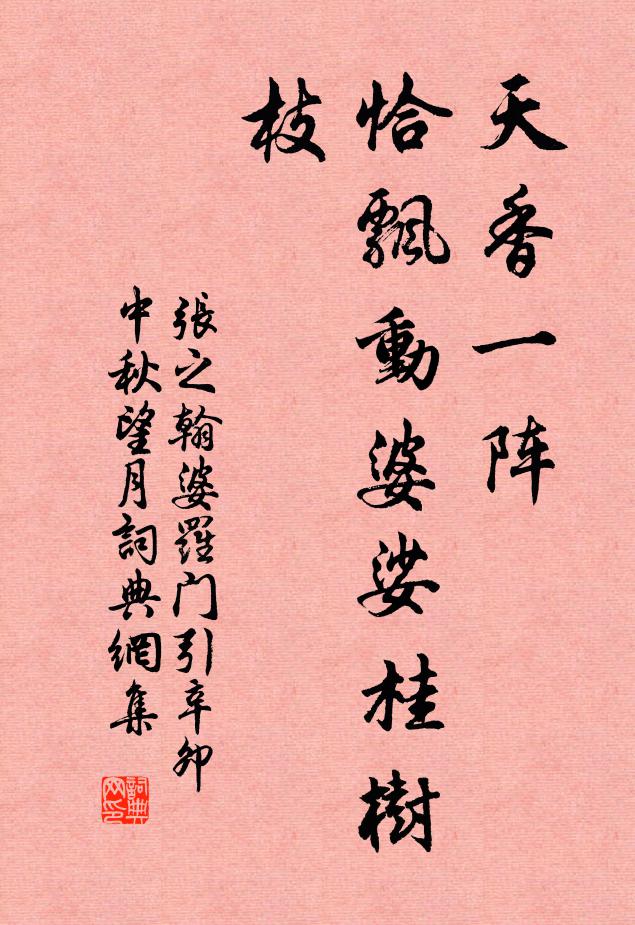 天香一阵
恰飄動婆娑桂樹
枝
張之翰婆羅门引辛卯
中秋望月詞典網集
詞典
网印